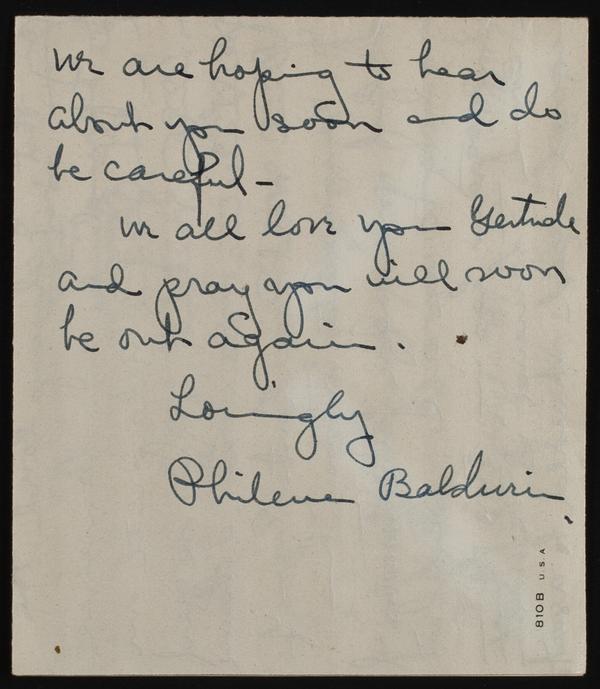 We are hoping to hear
about you soon and do
be careful -
We all love you Gertrude
and pray you will soon
be out again.
Lovingly
Philena Baldwin
810B USA